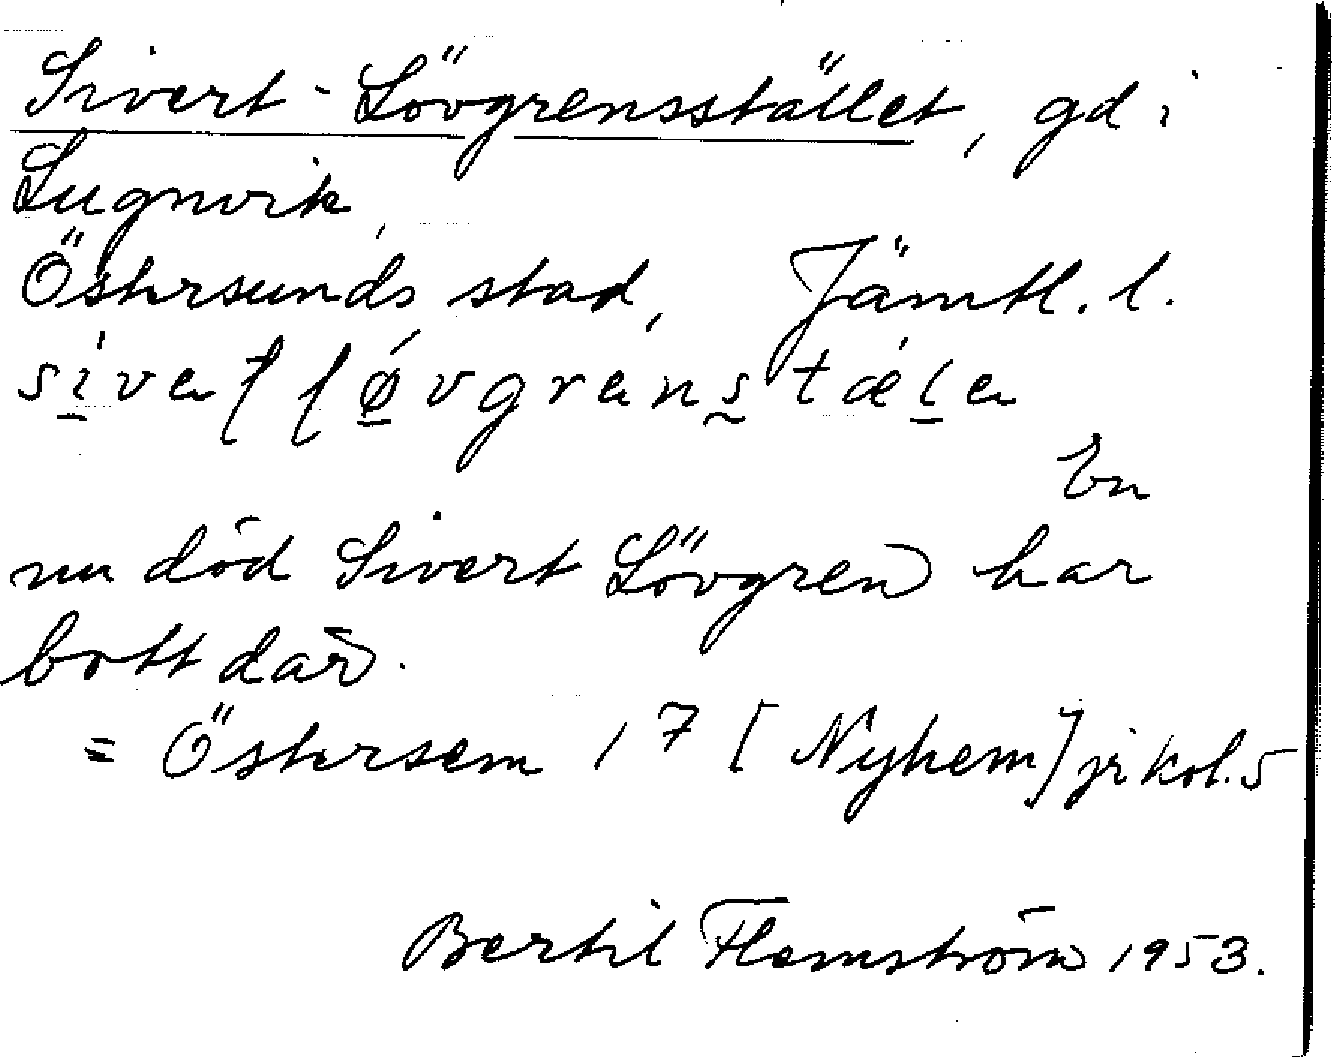 Sivert-Lövgrensstället, gd i
Lugnvik,
Östersunds stad, Jämtl. l.
En
nu död Sivert Lövgren har
bott där.
= Östersem 1 7 [Nyhem] jr kol. 5
Bertil Flemström 1953.